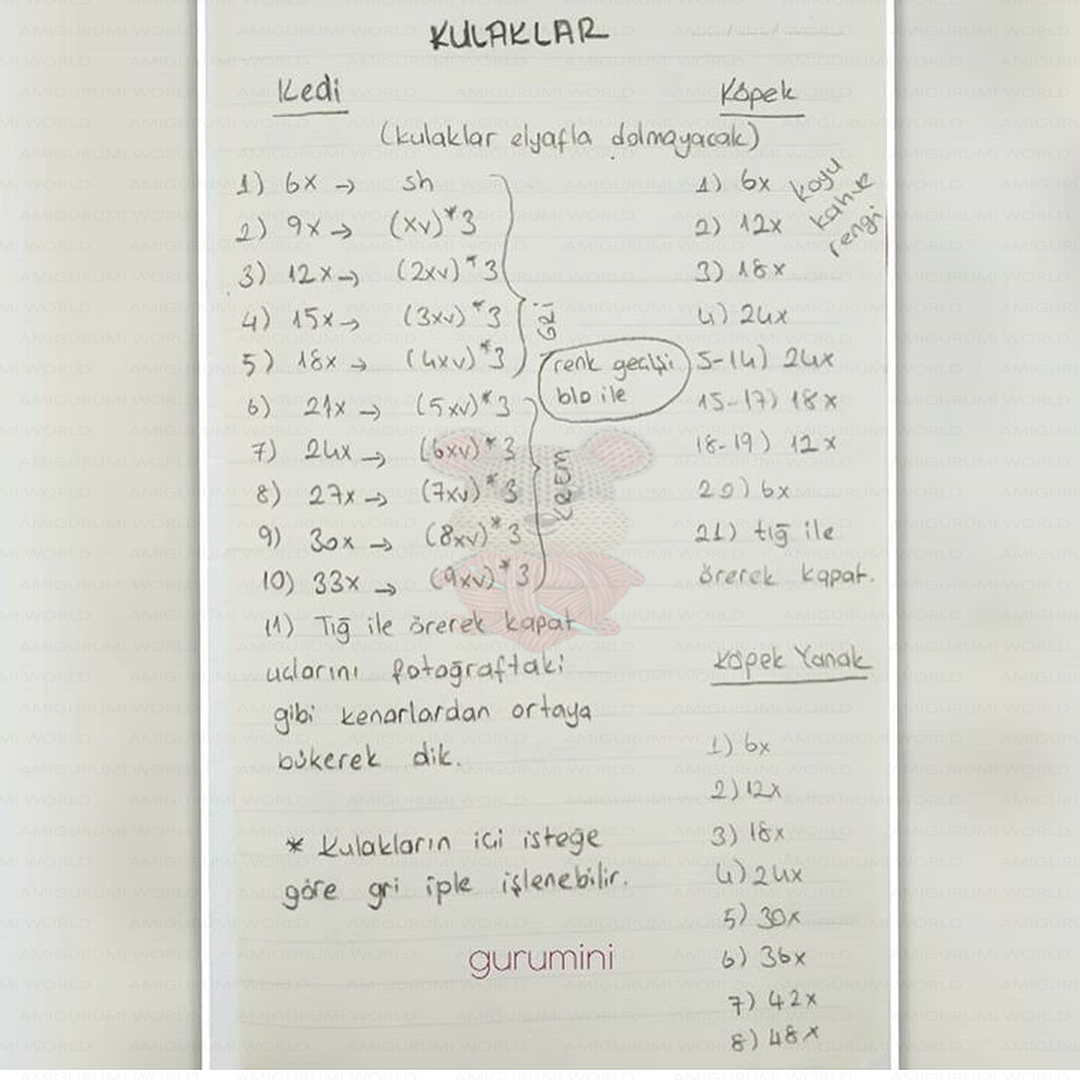 KULAKLAR
Kedi
(kulaklar elyafla dolmayacak)
1) 6x → sh
2) 9x → (xv)*3
3) 12x → (2xv)*3
4) 15x → (3xv)*3
5) 18x → (4xv)*3
Gri
renk geçişi
blo ile
6) 21x → (5xv)*3
7) 24x → (6xv)*3
8) 27x → (7xv)*3
9) 30x → (8xv)*3
10) 33x → (9xv)*3
krem
11) Tığ ile örerek kapat
uçlarını fotoğraftaki
gibi kenarlardan ortaya
bükerek dik.
* Kulakların içi isteğe
göre gri iple işlenebilir.
Köpek
1) 6x
koyu
kahve
rengi
2) 12x
3) 18x
4) 24x
5-14) 24x
15-17) 18x
18-19) 12x
20) 6x
21) tığ ile
örerek kapat.
Köpek Yanak
1) 6x
2) 12x
3) 18x
4) 24x
5) 30x
6) 36x
7) 42x
8) 48x
gurumini
AMIGURUMI WORLD